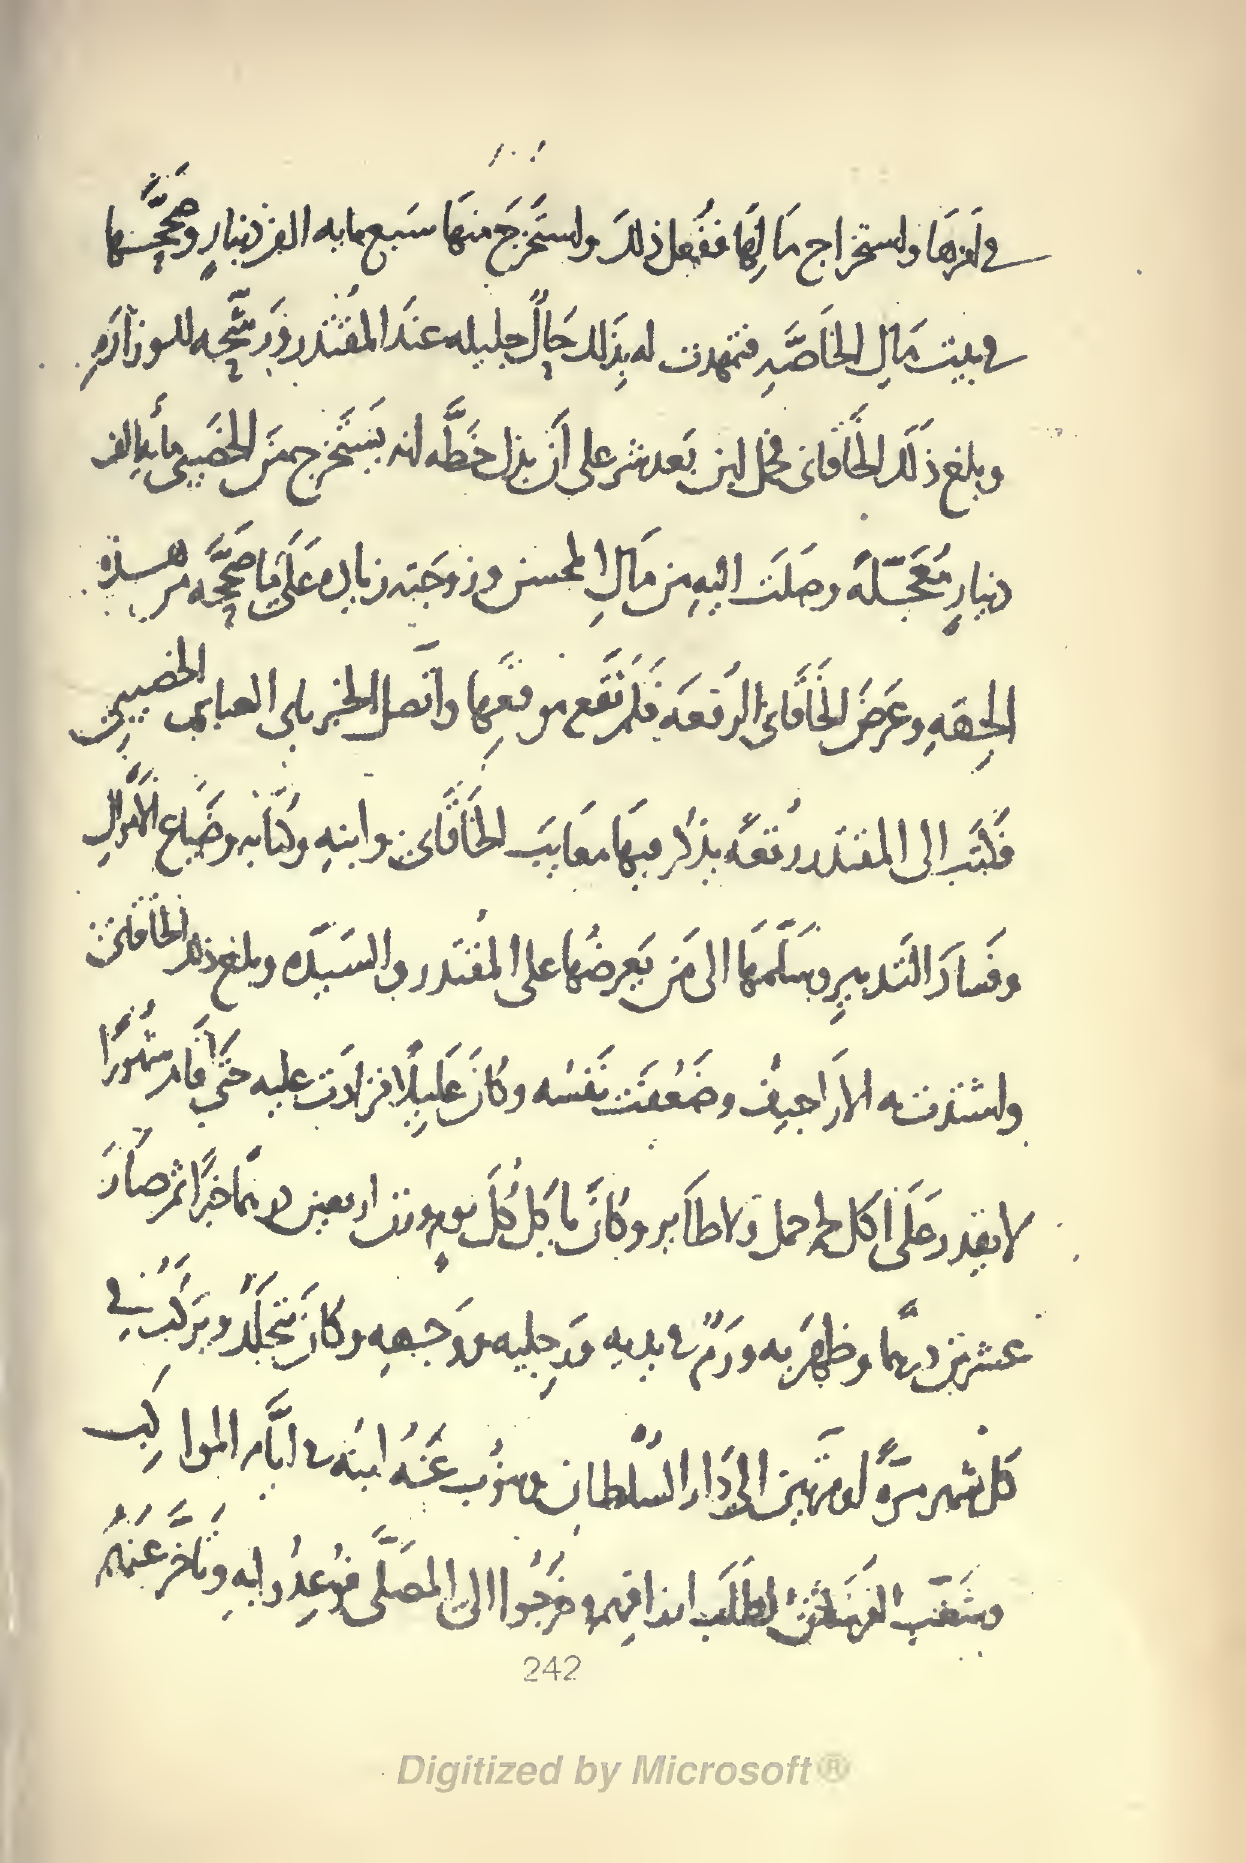 في امرها واستخراج مَالِهَا ففُعل ذلكَ واستَخرَجَ منهَا سَبع مايه الف دينارٍ وصَحَّحَها
في بيت مَالِ الخاصَّهِ فتمهدت له بِذَلك حَالٌ جليله عندَ المقتَدر ورَشَّحه للوزارَه
وبلغ ذَلكَ الخَاقاني فحمل ابن بَعدشر على أَن بذل خَطَّه انه يَستَخرج من الخَصيبي مايه الف
دينارٍ مُعَجَّلَه وصلَت اليهِ من مَالِ المحسن وزوجَته زياده عَلَى مَا صَحَّحَه من هذه
الجهَهِ وعَرَضَ الخَاقَاني الرُقعَه فَلَم تَقَع موقعَهِا واتصل الخبر بابي العباس الخصيبي
فَكتَب الى المقتدَر رقعَه يذكُر فيهَا معَايبَ الخَاقَاني وابنهِ وكُتّابه وضَيَاع الاموَالِ
وفَسادَ التَدبيرِ وسَلَّمهَا الى مَن يَعرضُها على المُقتَدر والسَيدَه وبلغ ذلك الخَاقاني
واشتدت به الارَاجيفُ وضَعُفَت نَفسُه وكانَ عَليلًا فزادَت عليه حَتَّى أقَام شُهُورًا
لا يقدر عَلَى اكل لحم حمل ولا طَاير وكَانَ ياكل كُلَ يوم وزن اربعين درهمًا خبزًا ثم صَارَ
عشرين درهمًا وظهَرَ به ورَمٌ في يديه ورَجليه ووجههِ وكانَ يتجَلَّدُ ويَركَبُ في
كل شهر مرَّةً او مرتَين الى دَار السُلطان وينُوب عَنهُ ابنُه في ايَّام المواكِب
وشَغَبَ الفرسَان لطَلَب ارزاقِهم وخرَجُوا الى المصَلَّى فوعِدُوا بهِ وتأخَّر عَنهُم
242
Digitized by Microsoft®